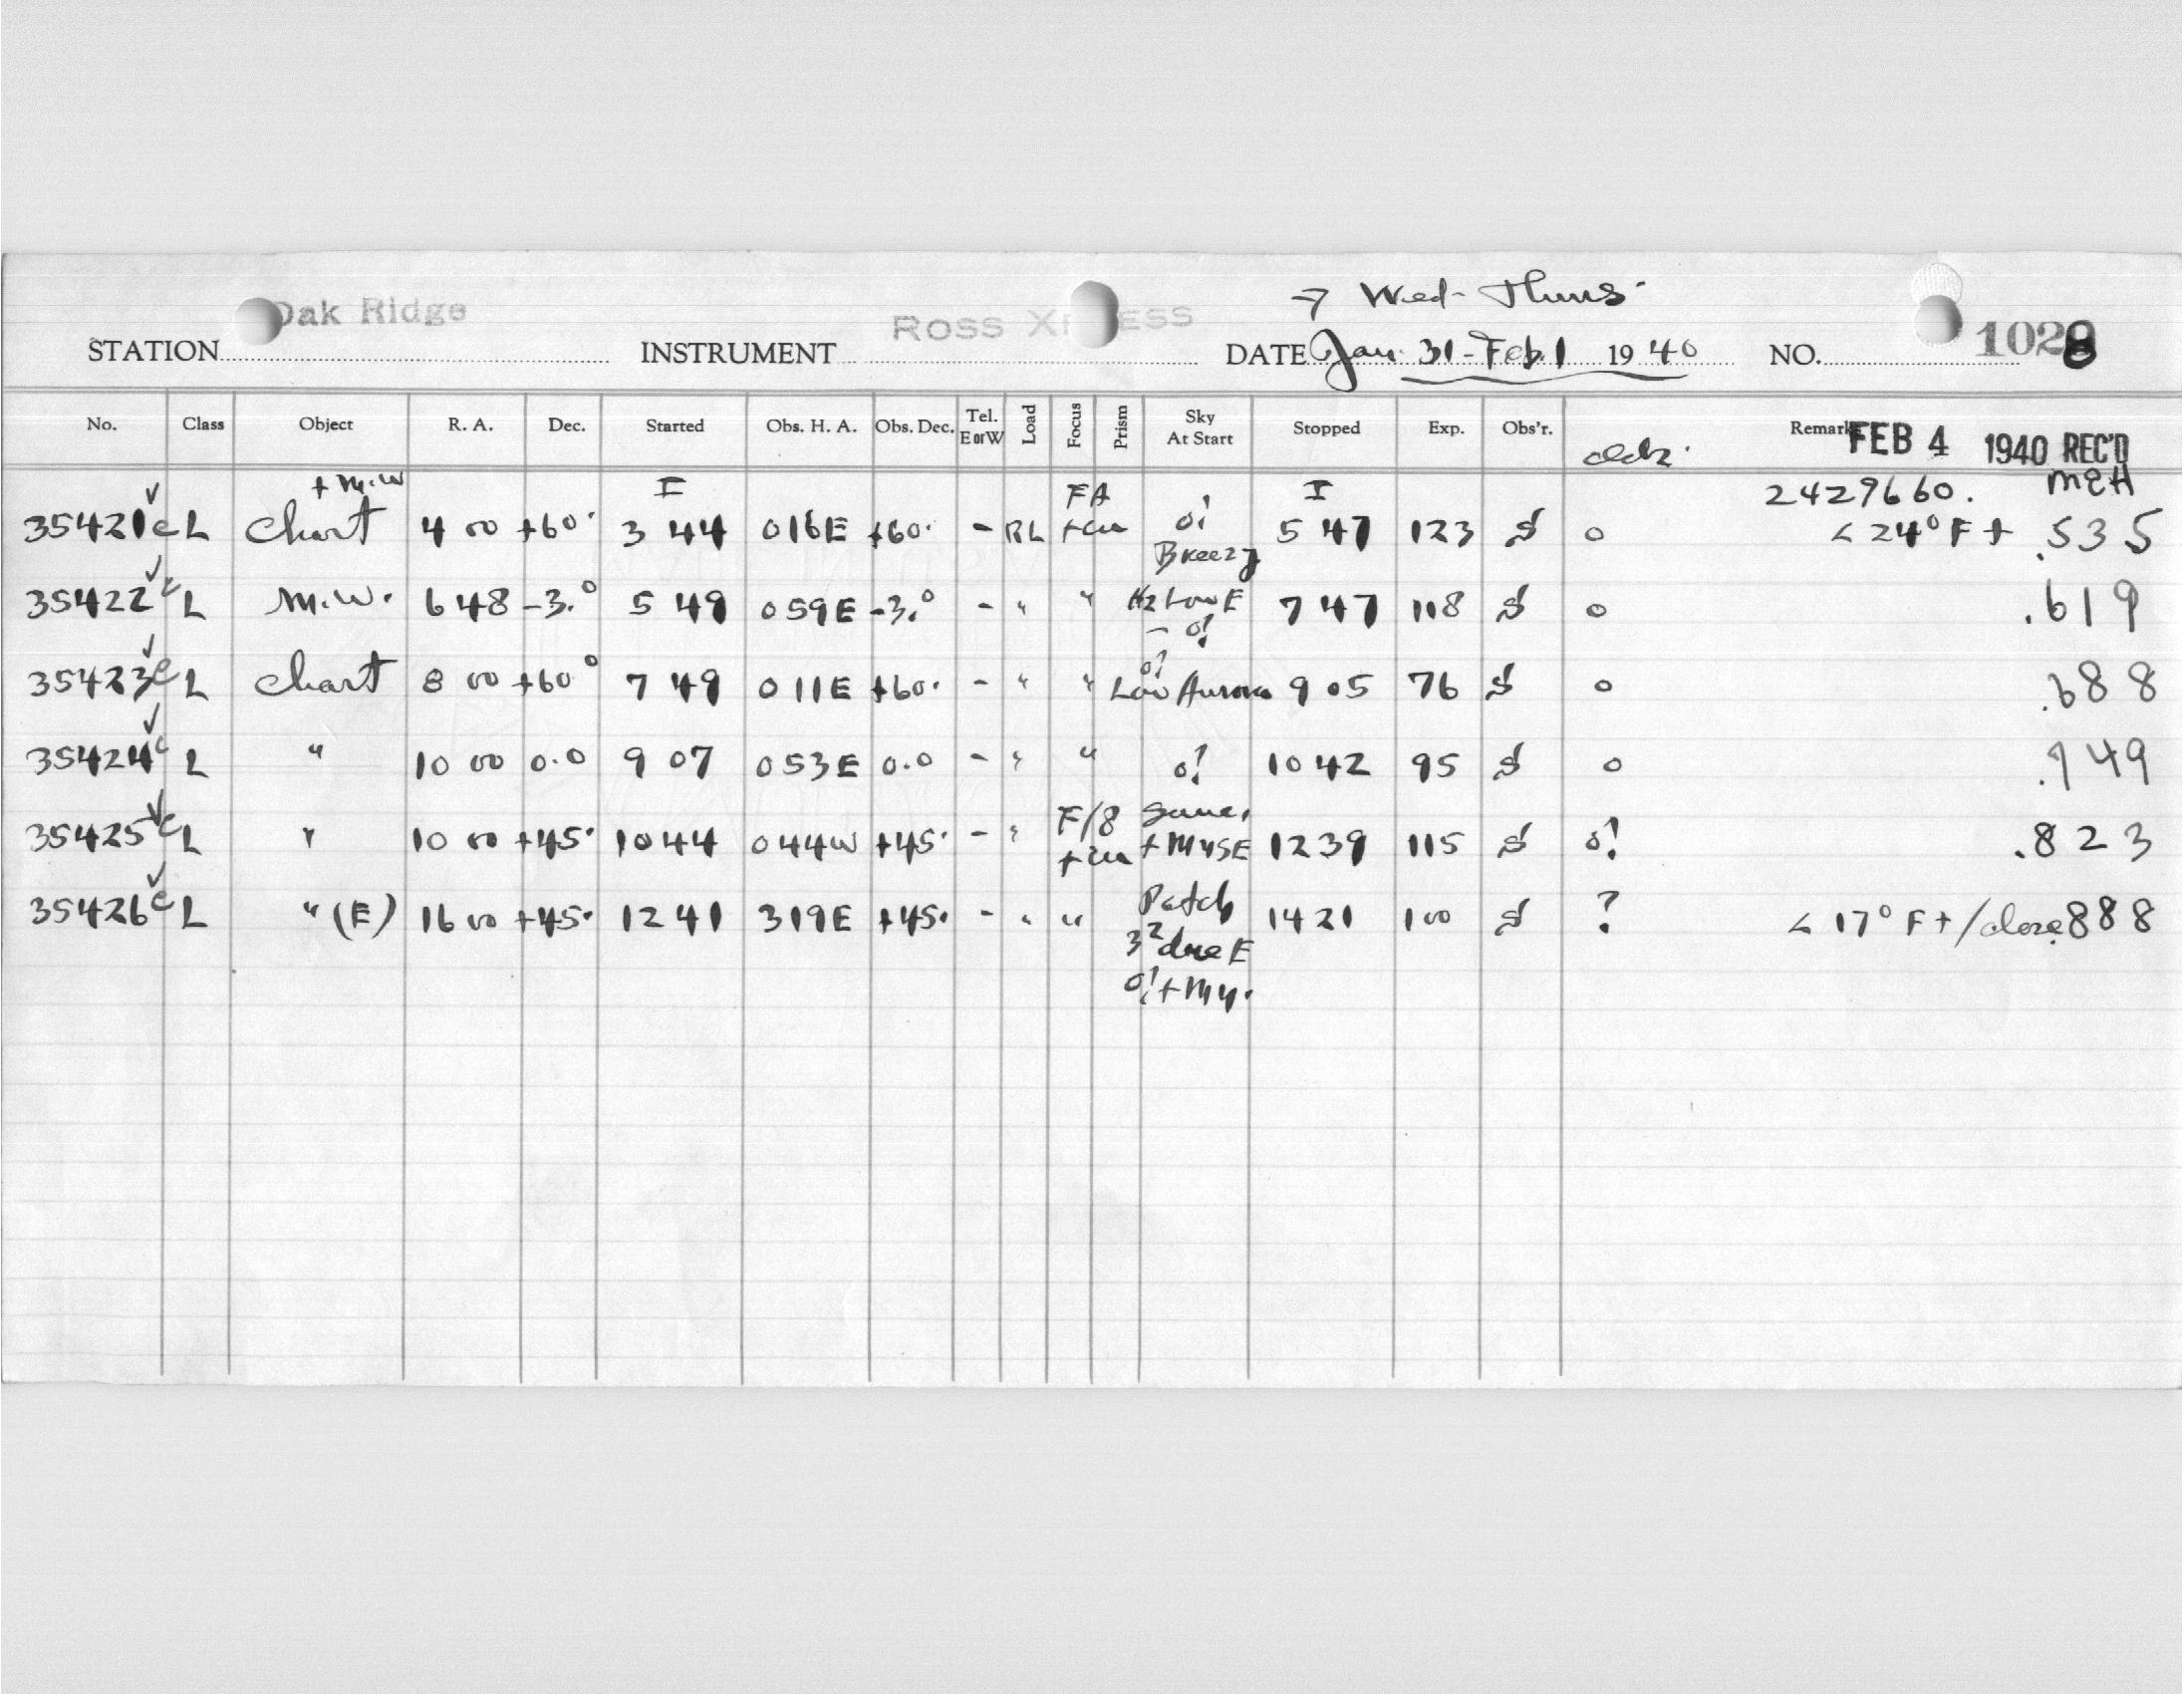 → Wed - Thurs.
STATION Oak Ridge INSTRUMENT ROSS X ESS DATE Jan. 31 - Feb. 1 1940 NO. 1028
No. Class Object R. A. Dec. Started Obs. H. A. Obs. Dec. Tel. E or W Load Focus Prism Sky At Start Stopped Exp. Obs'r. Remark FEB 4 1940 REC'D
+ M.W I FA I 2429660. MEH
35421 c L Chart 4 00 +60° 3 44 016E +60° - RL 0! 5 47 123 0 < 24° F + .535
Breezy
35422 c L M.W. 6 48 -3.° 5 49 059E -3.° - " " Hz Low E 7 47 118 0 .619
- 0!
0!
35423 c L Chart 8 00 +60° 7 49 011E +60° - " " Low Aurora 9 05 76 0 .688
35424 c L " 10 00 0.0 9 07 053E 0.0 - " " 0! 10 42 95 0 .749
F/8 Same,
35425 c L " 10 00 +45° 10 44 044W +45° - " 12 39 115 0! .823
Patch
35426 c L " (E) 16 00 +45° 12 41 319E +45° - " " 14 21 100 ? < 17° F + /close .888
3² due E
0! + My.